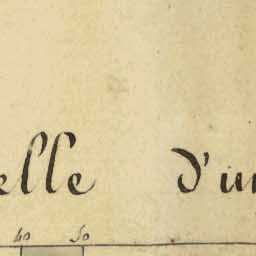 elle d'un
40 50